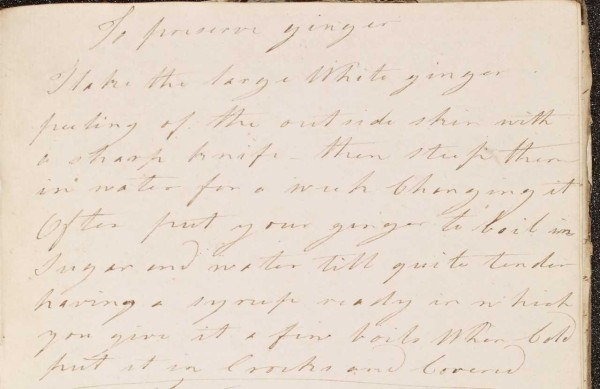 To preserve ginger
Take the large White ginger
peeling of the outside skin with
a sharp knife then steep them
in water for a week Changing it
Often put your ginger to boil in
Sugar and water till quite tender
having a syrup ready in which
you give it a few boils When Cold
put it in Crocks and Covered